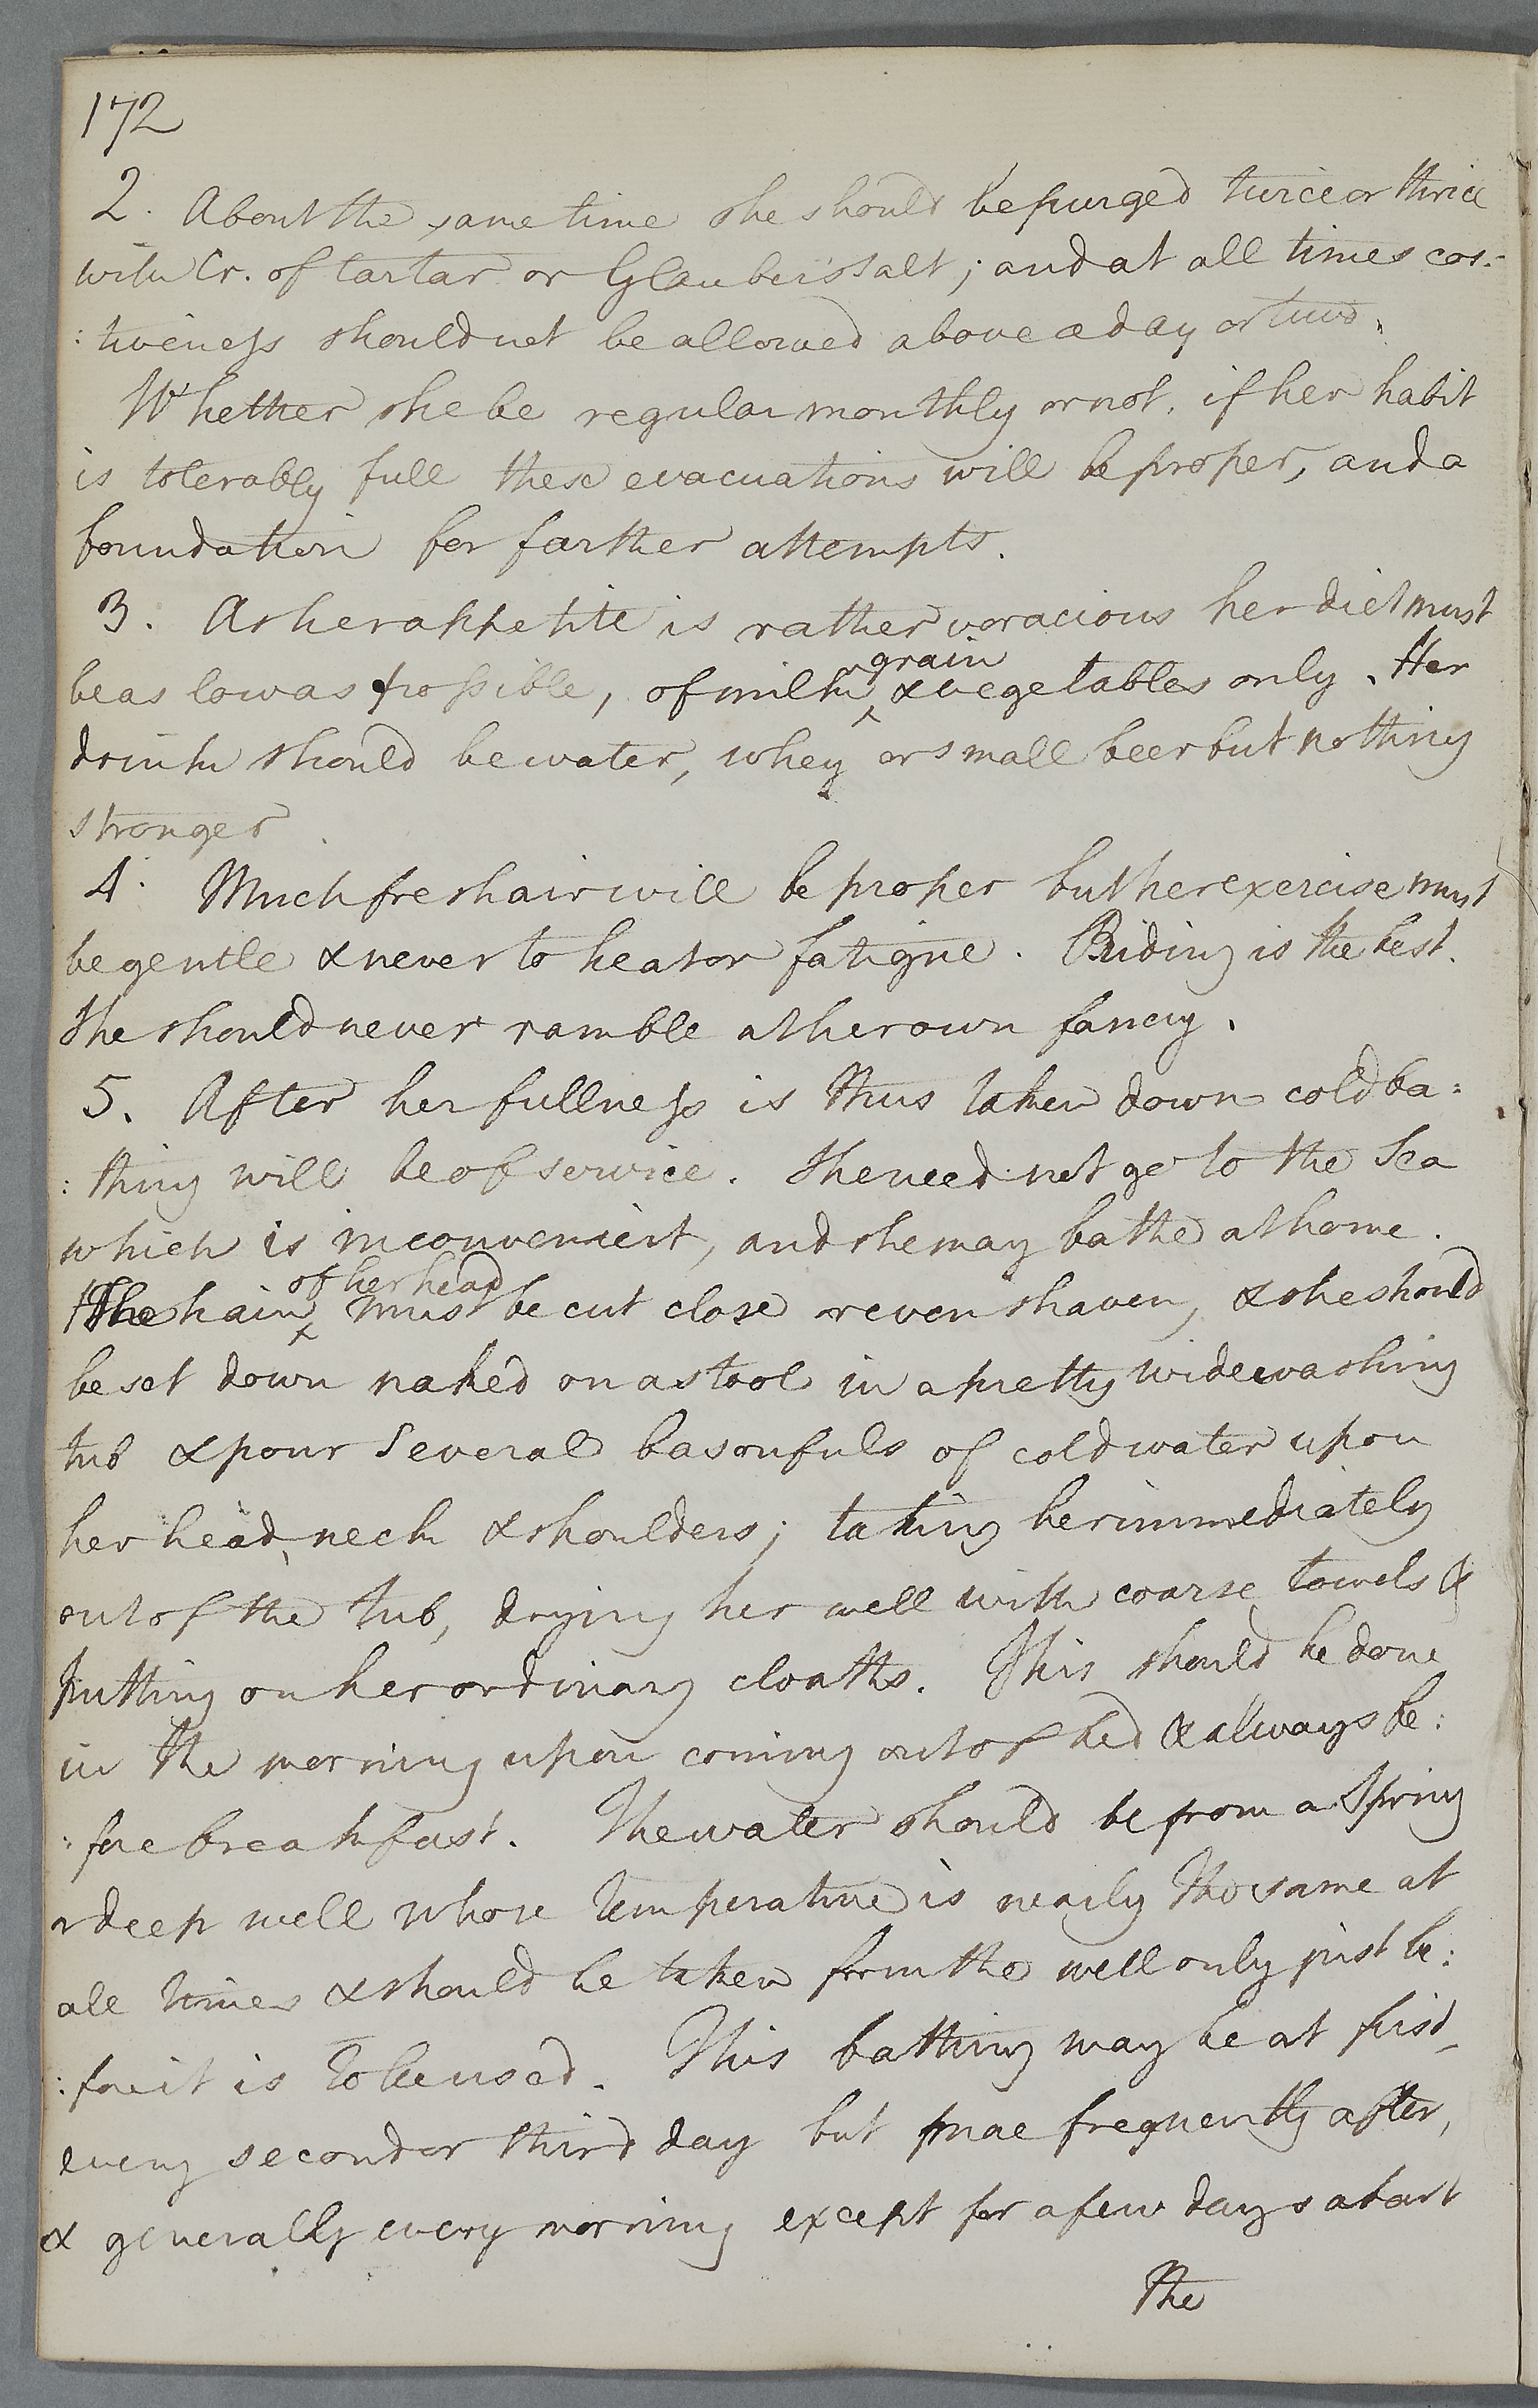 172
2. About the same time she should be purged twice or thrice
with Cr. of tartar or Glauber's Salt; and at all times cos:
:tiveness should not be allowed above a day or two.
Whether she be regular monthly or not, if her habit
is tolerably full these evacuations will be proper, and a
foundation for farther attempts.
3. As her appetite is rather voracious her diet must
be as low as possible, of milk or grain & vegetables only. Her
drink should be water, whey or small beer but nothing
stronger.
4. Much fresh air will be proper but her exercise must
be gentle & never to heat or fatigue. Riding is the best.
She should never ramble at her own fancy.
5. After her fullness is thus taken down cold ba:
:thing will be of service. She need not go to the Sea
which is inconvenient, and she may bathe at home.
The hair of her head must be cut close or even shaven, & she should
be set down naked on a stool in a pretty wide washing
tub & pour several basonfuls of cold water upon
her head, neck & shoulders; taking her immediately
out of the tub, drying her well with coarse towels &
putting on her ordinary cloaths. This should be done
in the morning upon coming out of bed & always be:
:fore breakfast. The water should be from a Spring
or deep well whose temperature is nearly the same at
all times & should be taken from the well only just be:
:fore it is to be used. This bathing may be at first
every second or third day but more frequently after,
& generally every morning except for a few days about
the